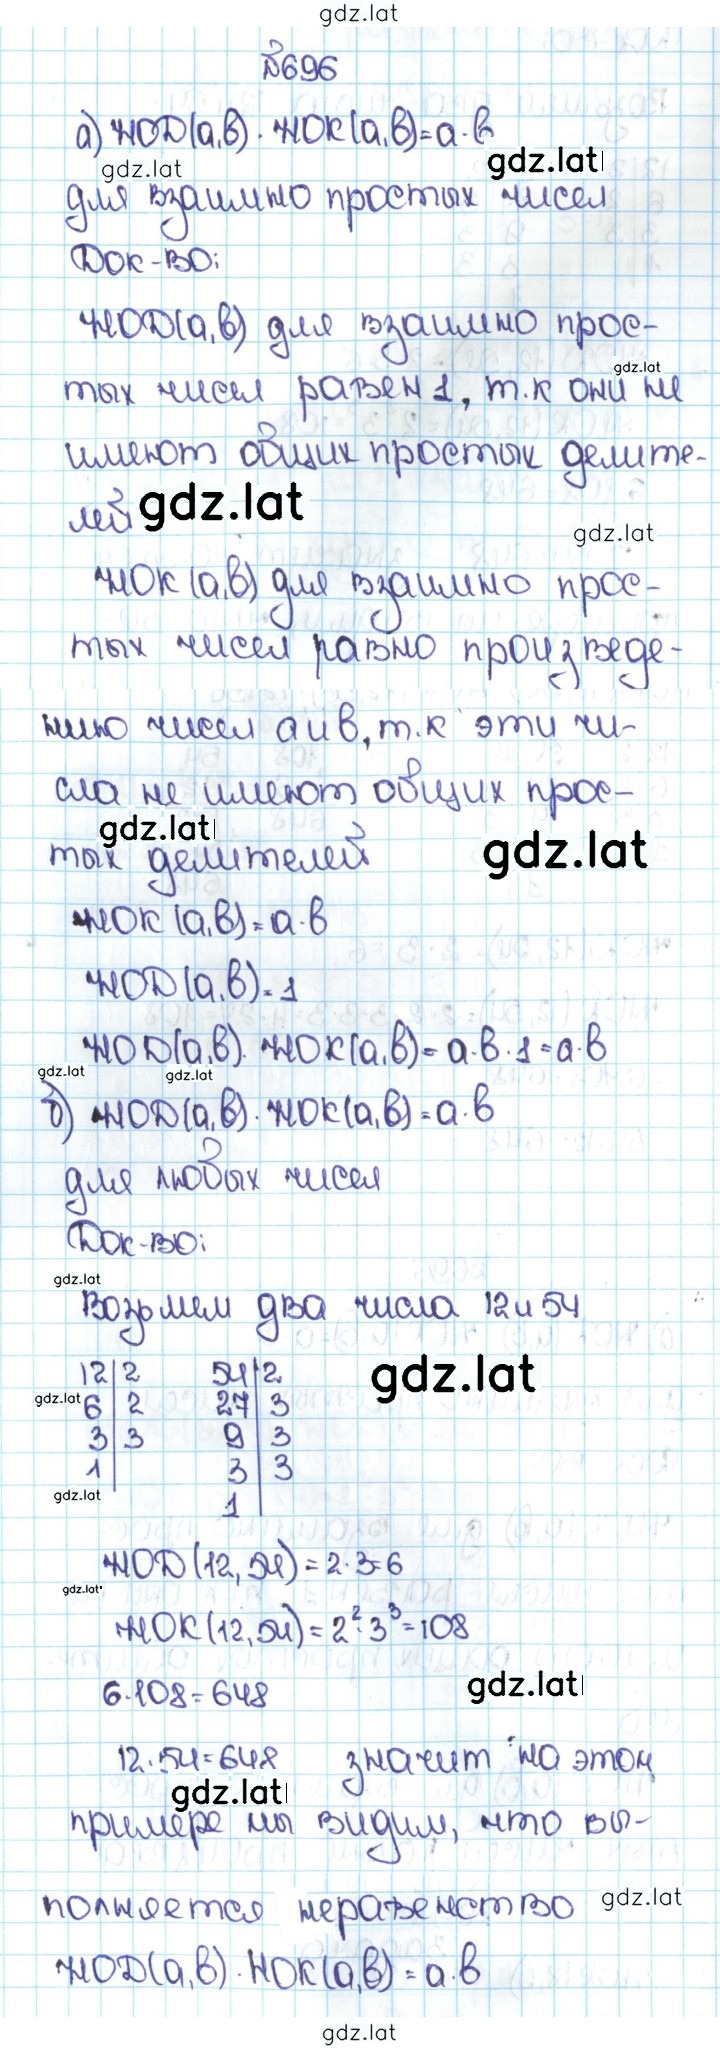 gdz.lat
№696
а) НОД(а,в)·НОК(а,в)=а·в
gdz.lat
gdz.lat
для взаимно простых чисел
Док-во:
НОД(а,в) для взаимно прос-
gdz.lat
тых чисел равен 1, т.к они не
имеют общих простых делите-
лей gdz.lat
gdz.lat
НОК(а,в) для взаимно прос-
тых чисел равно произведе-
нию чисел а и в, т.к эти чи-
сла не имеют общих прос-
gdz.lat
gdz.lat
тых делителей
НОК(а,в)=а·в
НОД(а,в)=1
НОД(а,в)·НОК(а,в)=а·в·1=а·в
gdz.lat gdz.lat
б) НОД(а,в)·НОК(а,в)=а·в
для любых чисел
Док-во:
gdz.lat
Возьмем два числа 12 и 54
12|2 54|2
gdz.lat
gdz.lat
6|2 27|3
3|3 9|3
1| 3|3
gdz.lat
1|
НОД(12,54)=2·3=6
gdz.lat
НОК(12,54)=2²·3³=108
6·108=648 gdz.lat
12·54=648 значит на этом
gdz.lat
примере мы видим, что вы-
полняется неравенство gdz.lat
НОД(а,в)·НОК(а,в)=а·в
gdz.lat